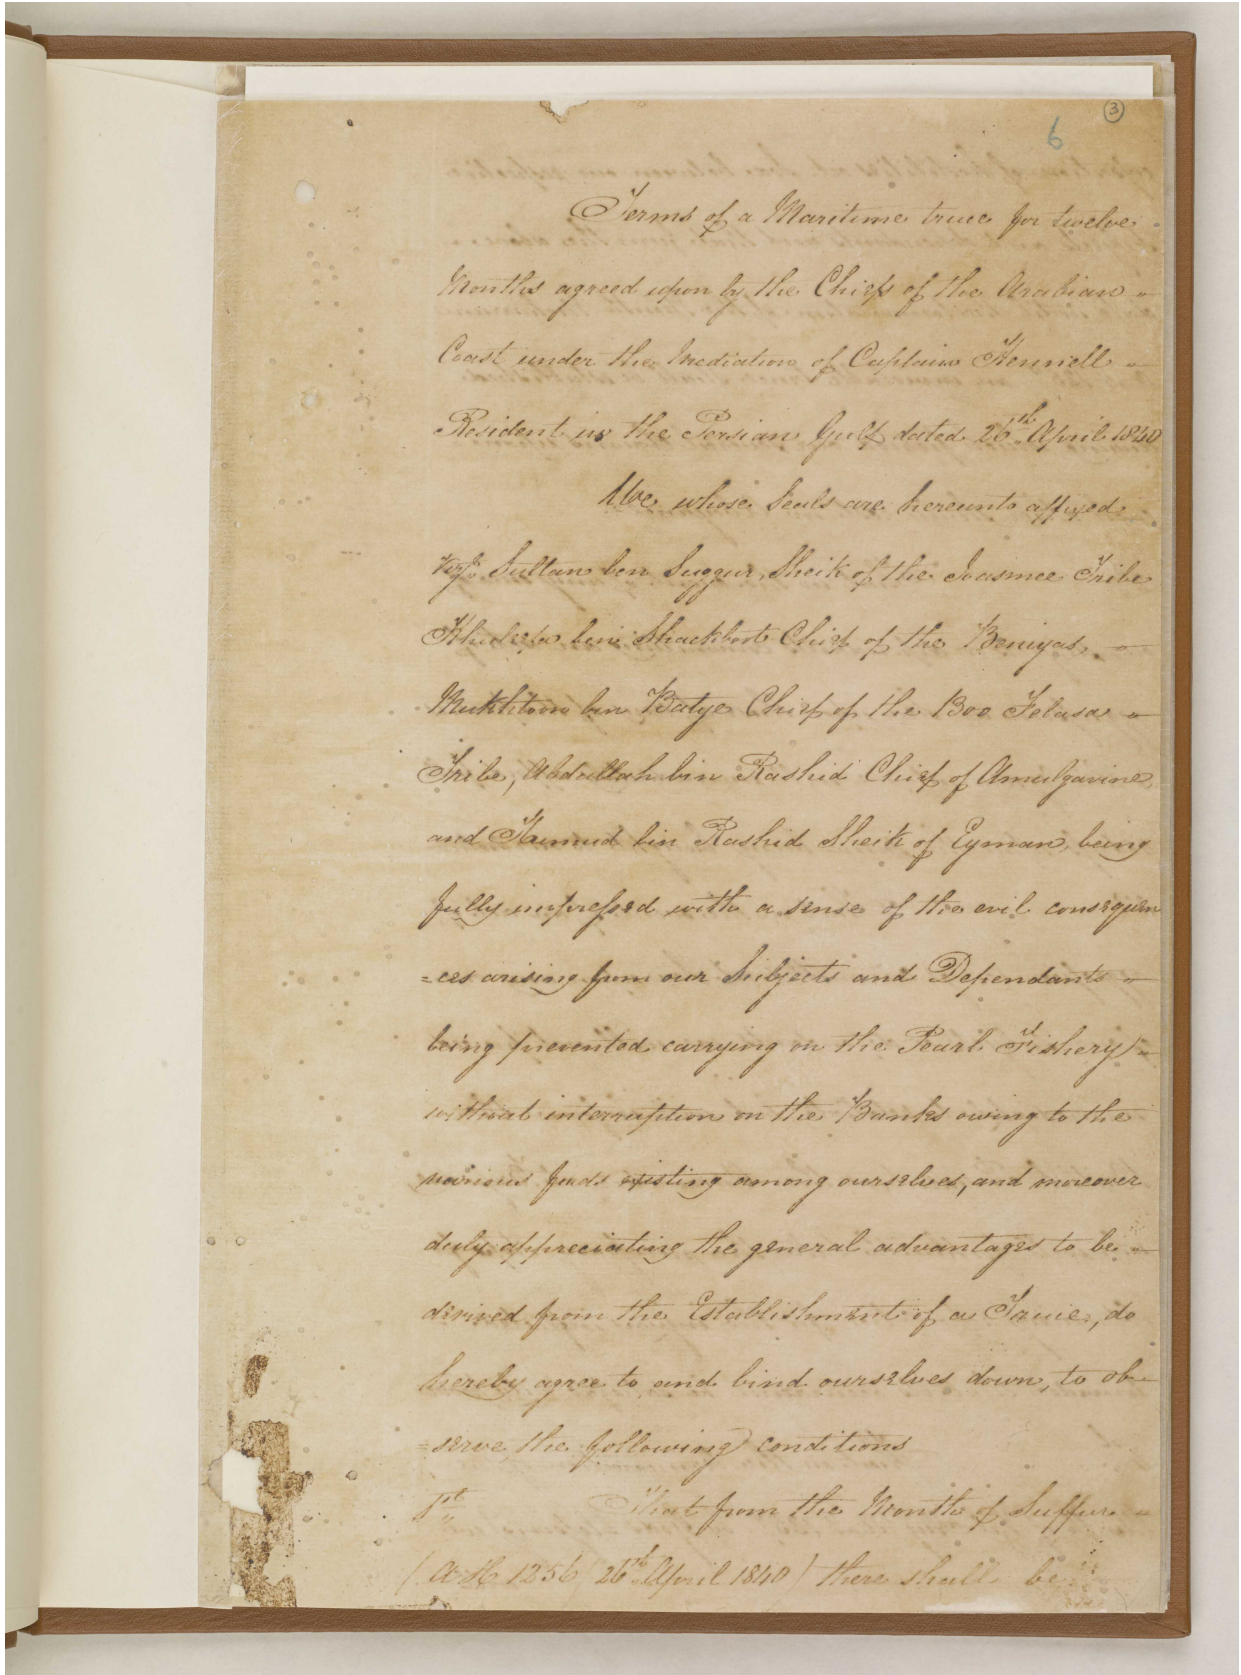 3
6
Terms of a Maritime truce for twelve
Months agreed upon by the Chiefs of the Arabian "
Coast under the Mediation of Captain Hennell "
Resident in the Persian Gulf dated 26th April 1840
We whose Seals are hereunto affixed
vizt. Sultan ben Suggur, Sheik of the Joasmee Tribe
Khuleefa bin Shackboot Chief of the Beniyas, "
Mukhtoom bin Batye Chief of the Boo Felasa "
Tribe, Abdullah bin Rashid Chief of Amulgavine,
and Humud bin Rashid Sheik of Eyman, being
fully impressed with a sense of the evil consequen
=ces arising from our Subjects and Dependants "
being prevented carrying on the Pearl Fishery "
without interruption on the Banks owing to the
various feuds existing among ourselves, and moreover
duly appreciating the general advantages to be "
derived from the Establishment of a Truce, do
hereby agree to, and bind ourselves down, to ob-
=serve, the following conditions
1st " That from the Month of Suffur "
(AH 1256 / 26th April 1840) there shall be